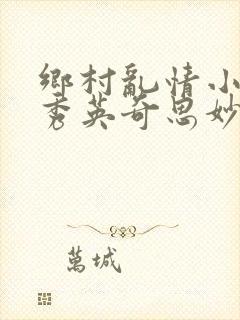 鄉村亂情小
秀英奇思妙
萬城